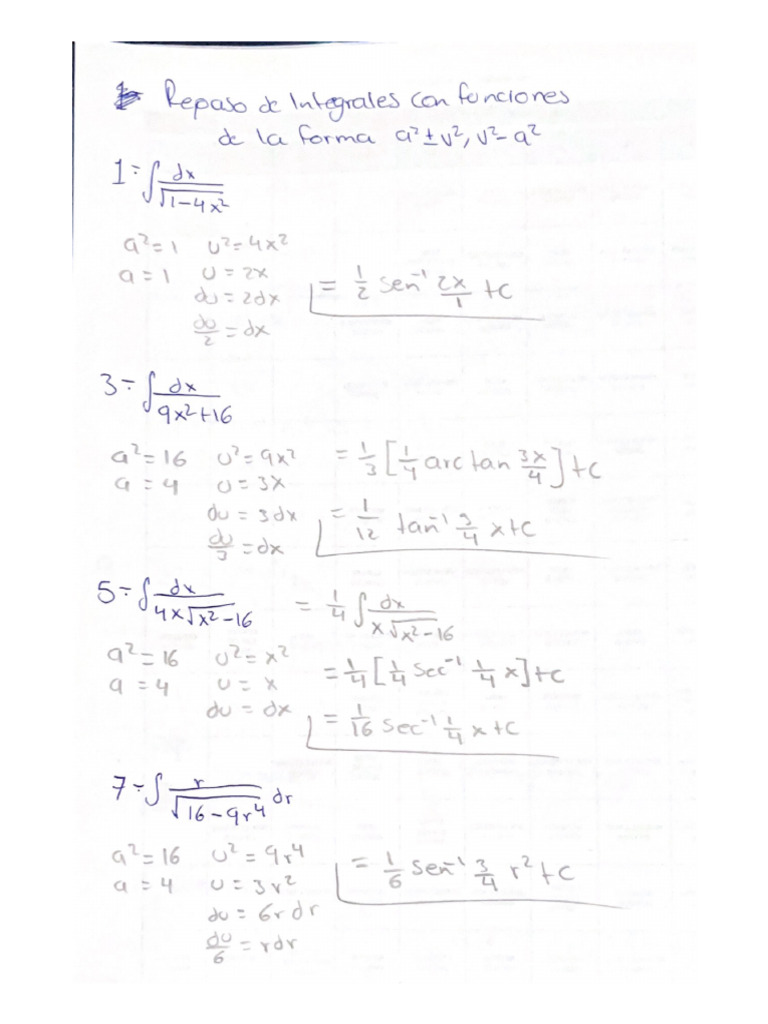 Repaso de Integrales con funciones
de la forma a²±u², u²-a²
1÷ ∫ dx / √1-4x²
a²=1 u²=4x²
a=1 u=2x
du=2dx
du/2 = dx
= 1/2 sen⁻¹ 2x/1 +c
3÷ ∫ dx / 9x²+16
a²=16 u²=9x²
a=4 u=3x
du=3dx
du/3 = dx
= 1/3 [1/4 arctan 3x/4] +c
= 1/12 tan⁻¹ 3/4 x+c
5÷ ∫ dx / 4x√x²-16 = 1/4 ∫ dx / x√x²-16
a²=16 u²=x²
a=4 u=x
du=dx
= 1/4 [1/4 sec⁻¹ 1/4 x] +c
= 1/16 sec⁻¹ 1/4 x+c
7÷ ∫ r / √16-9r⁴ dr
a²=16 u²=9r⁴
a=4 u=3r²
du=6rdr
du/6 = rdr
= 1/6 sen⁻¹ 3/4 r²+c